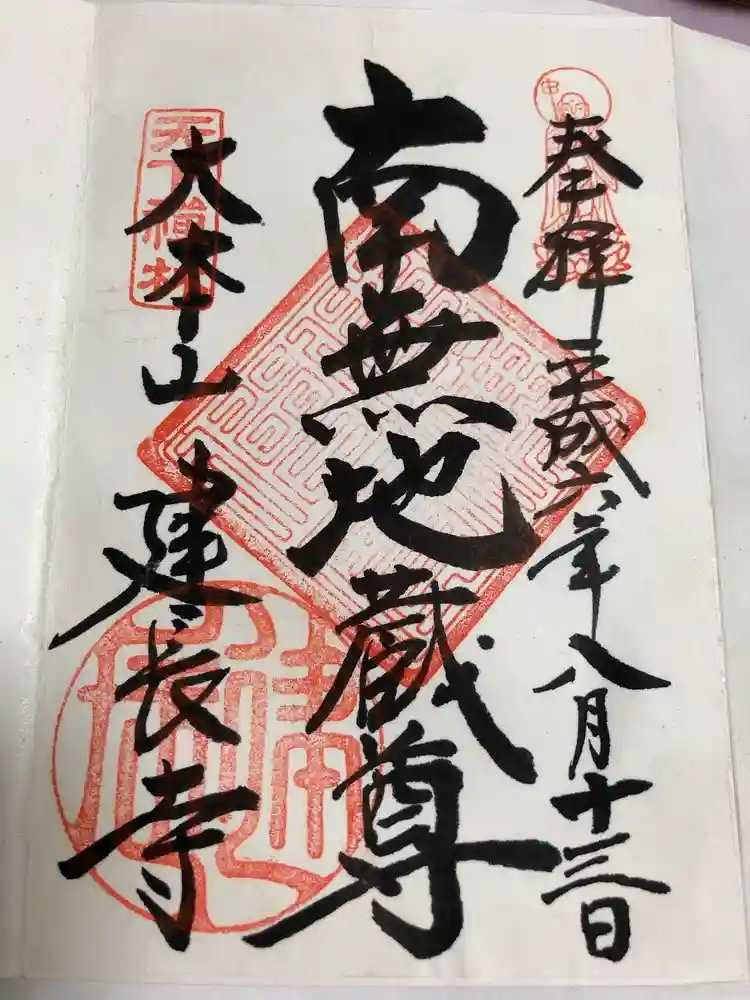 奉拝 平成六年八月十三日
南無地蔵尊
天下禅林
大本山 建長寺